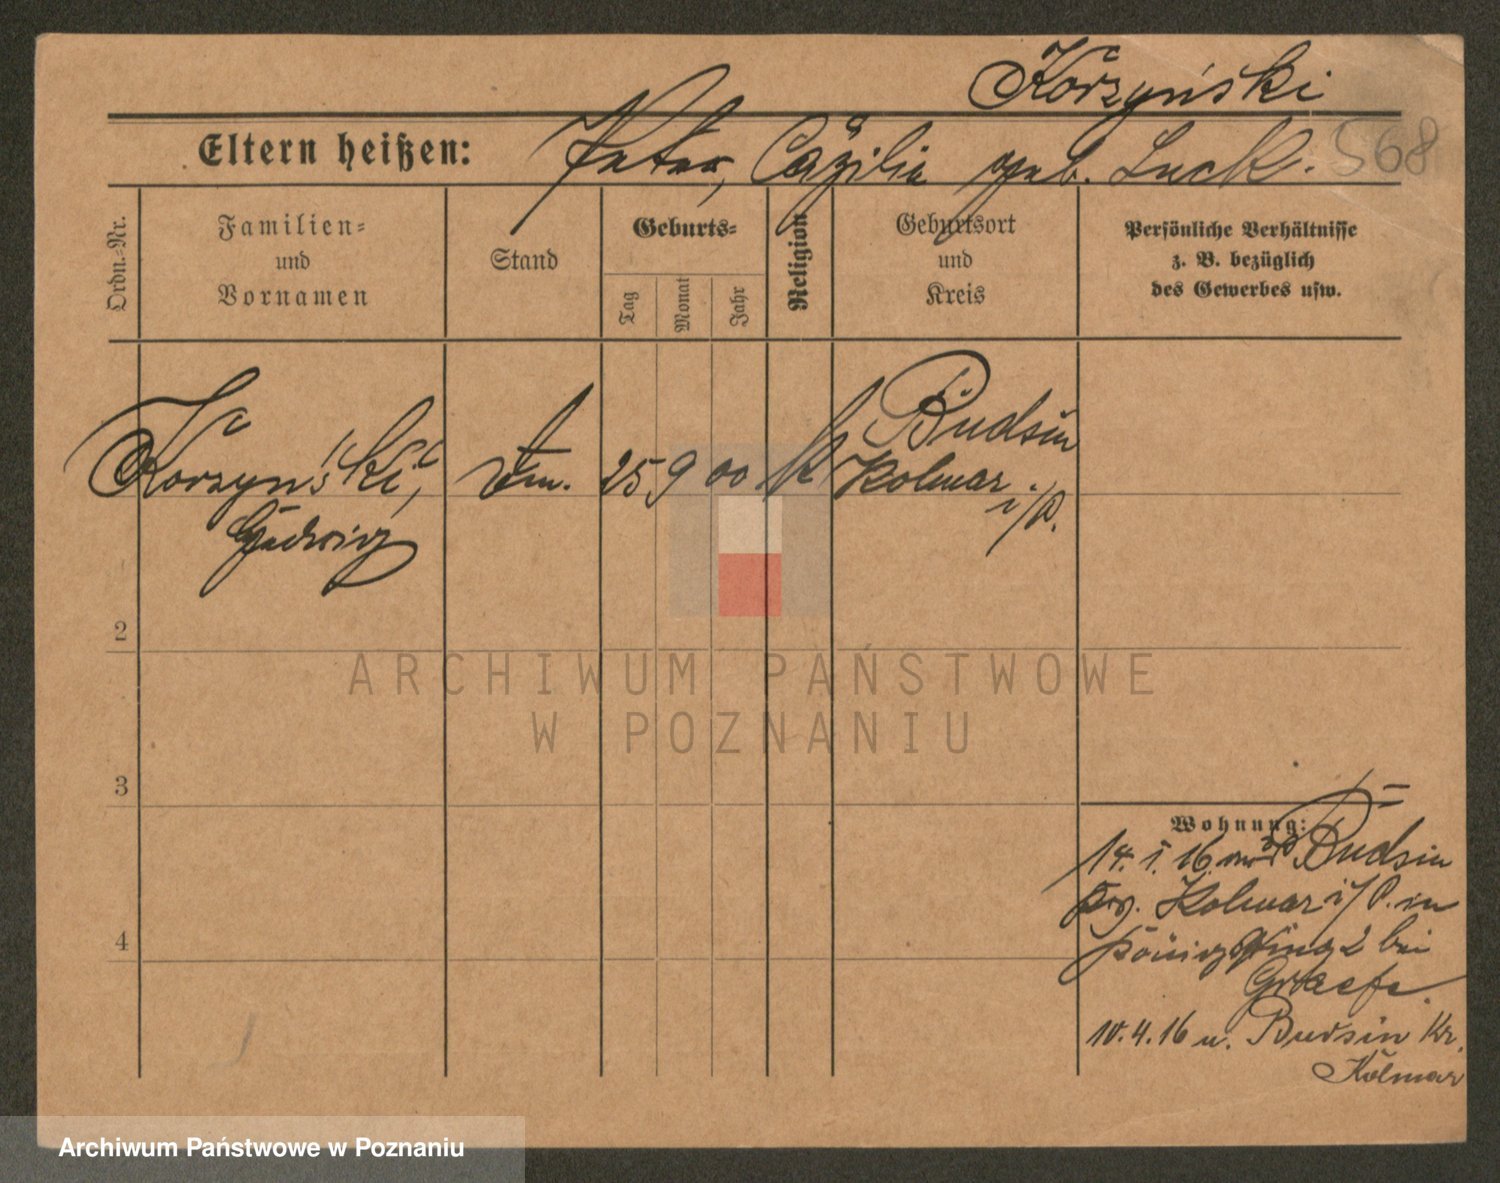 Korzyński
Eltern heißen: Peter, Cäzilie geb. Luck.
568
Ordn.=Nr.
Familien=
und
Vornamen
Stand
Geburts=
Tag
Monat
Jahr
Religion
Geburtsort
und
Kreis
Persönliche Verhältnisse
z. B. bezüglich
des Gewerbes usw.
Korzyński, 25 9 00 k Budsin
Hedwig
Kolmar
i/P.
2
3
4
Wohnung:
14. I. 16 Budsin
Kolmar i/P. in
Königsring 2 bei
Graefe.
10.4.16 n. Budsin Kr.
Kolmar
ARCHIWUM PAŃSTWOWE
W POZNANIU
Archiwum Państwowe w Poznaniu